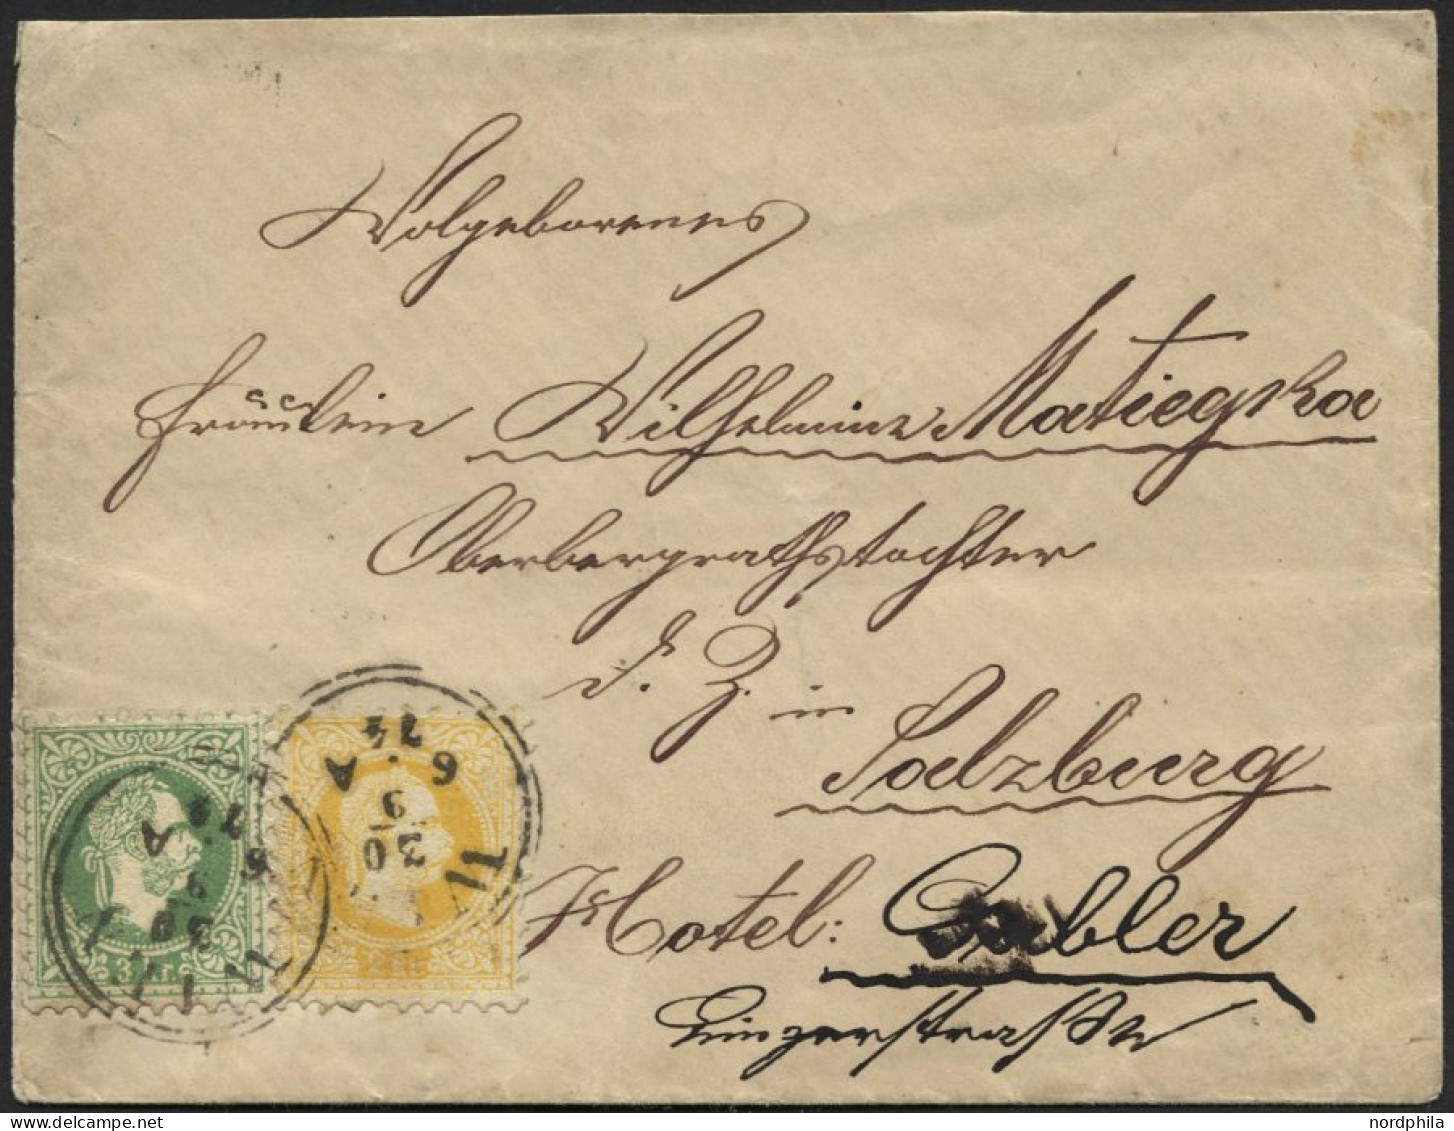 Wolgeborenes
Fräulein Wilhelmine Matiegska
Oberbergrathstochter
d. Z. in
Salzburg
Hotel: Gabler
Linzerstraße
6 . A
74
30
9
A
74
6
9
30
3 kr.
nordphila